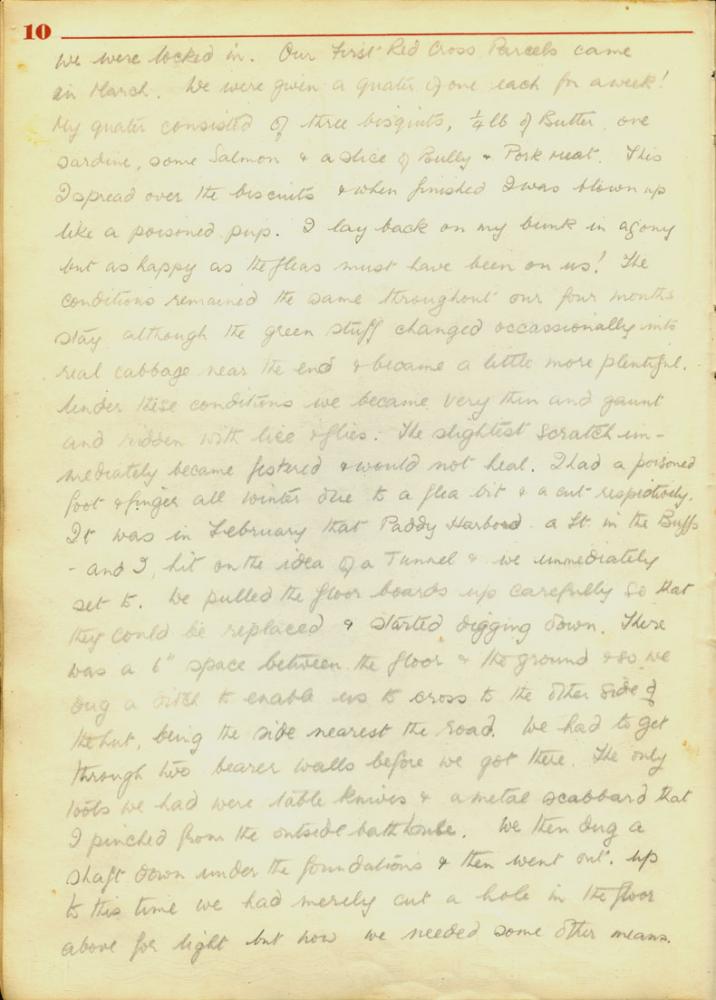 10
we were locked in. Our First Red Cross Parcels came
in March. We were given a quater of one each for a week!
My quater consisted of three bisquits, ¼ lb of Butter, one
sardine, some Salmon & a slice of Bully & Pork meat. This
I spread over the biscuits & when finished I was blown up
like a poisoned pup. I lay back on my bunk in agony
but as happy as the fleas must have been on us! The
conditions remained the same throughout our four months
stay, although the green stuff changed occassionally into
real cabbage near the end & became a little more plentiful.
Under these conditions we became very thin and gaunt
and ridden with lice & flies. The slightest scratch im-
mediately became festured & would not heal. I had a poisoned
foot & finger all winter due to a flea bit & a cut respictively.
It was in February that Paddy Harbord a Lt. in the Buffs
- and I, hit on the idea of a Tunnel & we immediately
set to. We pulled the floor boards up carefully so that
they could be replaced & started digging down. There
was a 6" space between the floor & the ground & so we
dug a ditch to enable us to cross to the other side of
the hut, being the side nearest the road. We had to get
through two bearer walls before we got there. The only
tools we had were table knives & a metal scabbard that
I pinched from the outside bath house. We then dug a
shaft down under the foundations & then went out. up
to this time we had merely cut a hole in the floor
above for light but now we needed some other means.